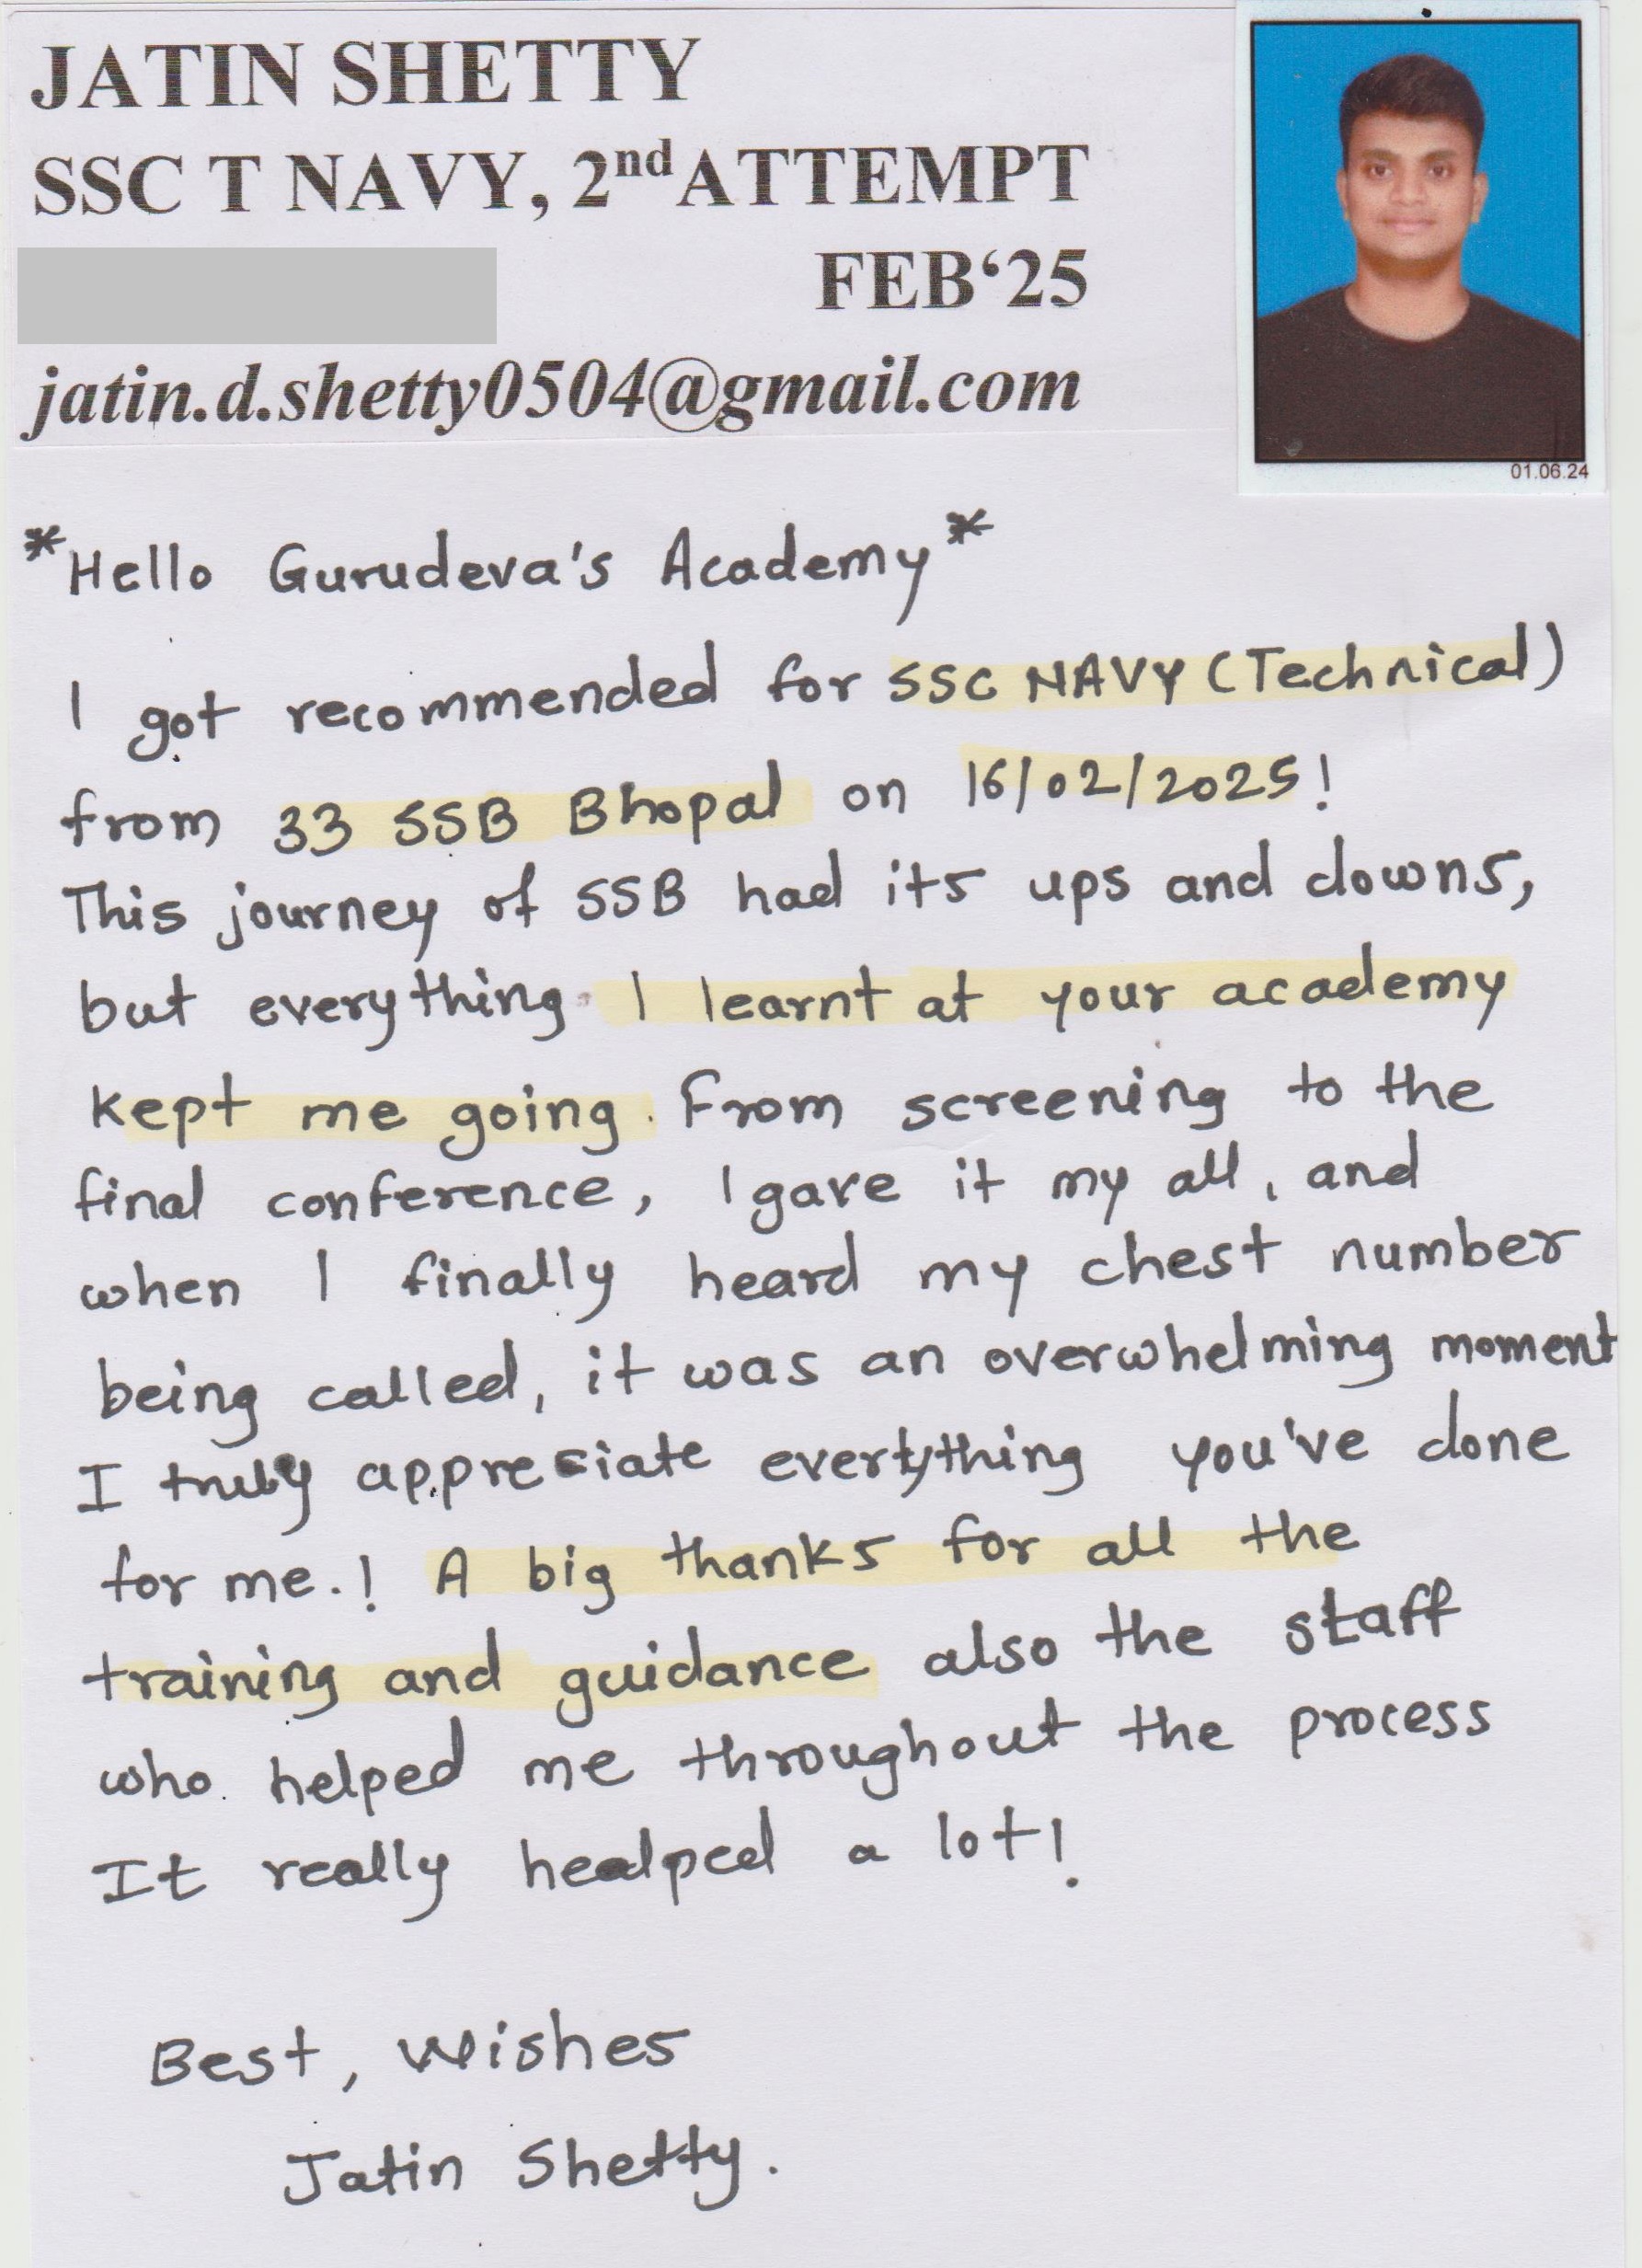 JATIN SHETTY
SSC T NAVY, 2nd ATTEMPT
FEB‘25
jatin.d.shetty0504@gmail.com
01.06.24
*Hello Gurudeva's Academy*
I got recommended for SSC NAVY (Technical)
from 33 SSB Bhopal on 16/02/2025!
This journey of SSB had its ups and downs,
but everything I learnt at your academy
kept me going. From screening to the
final conference, I gave it my all, and
when I finally heard my chest number
being called, it was an overwhelming moment
I truly appreciate everything you've done
for me.! A big thanks for all the
training and guidance also the staff
who helped me throughout the process
It really healped a lot!
Best, Wishes
Jatin Shetty.